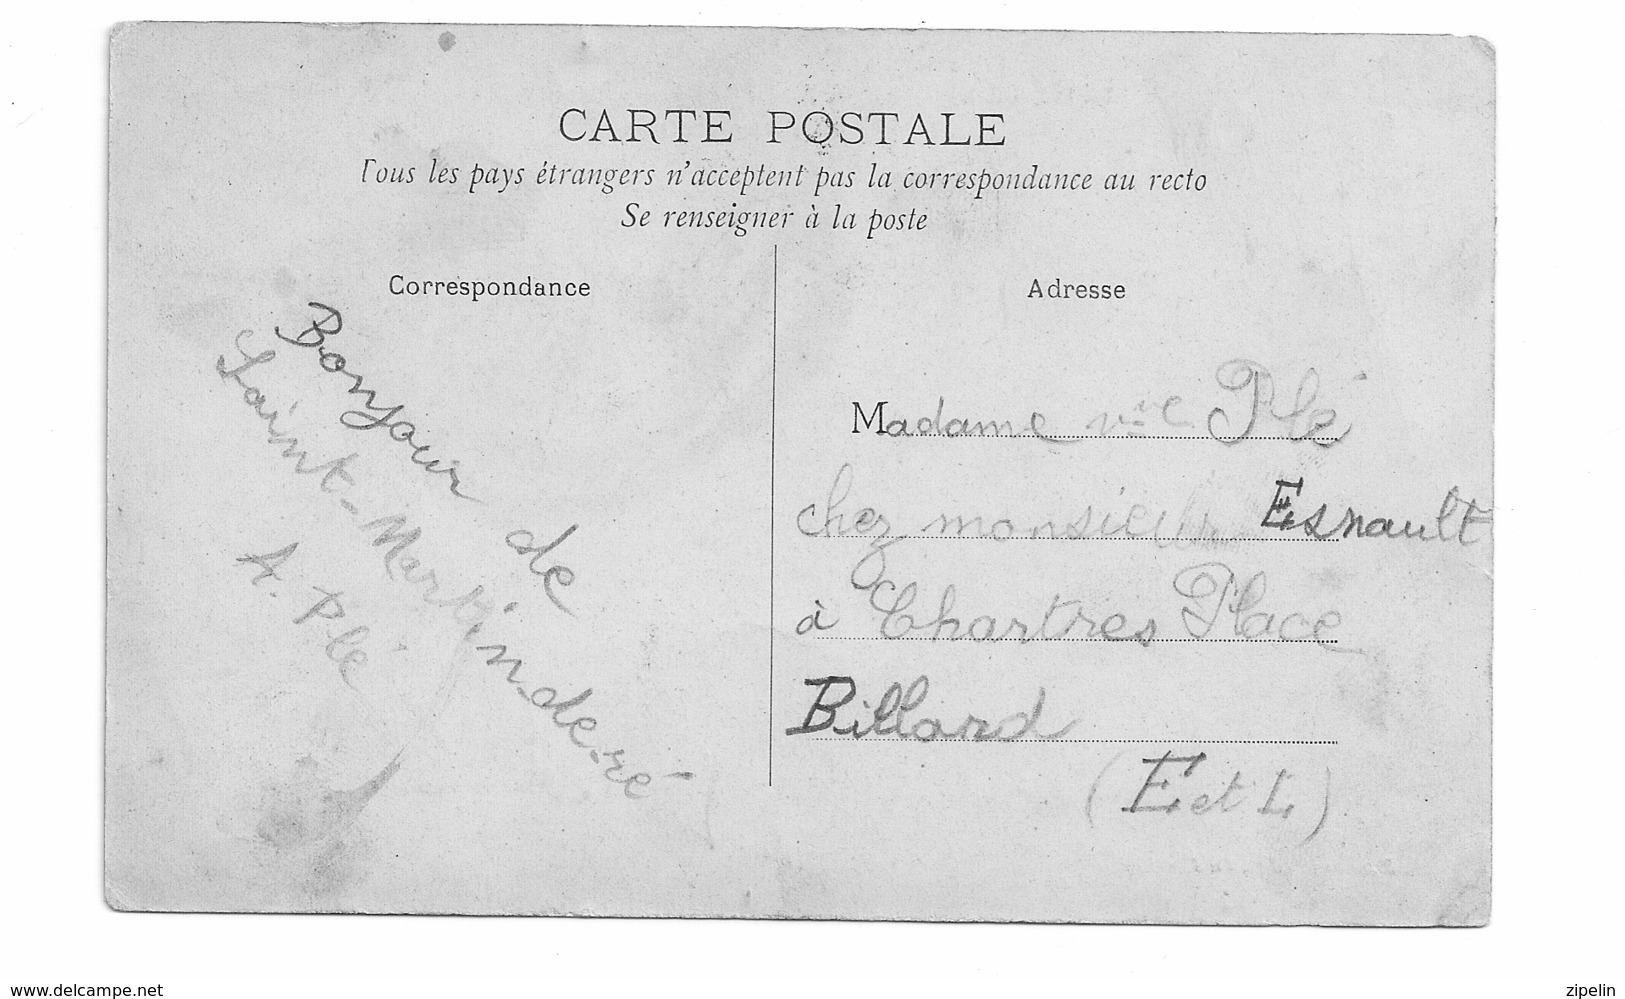 CARTE POSTALE
Tous les pays étrangers n'acceptent pas la correspondance au recto
Se renseigner à la poste
Correspondance
Bonjour de
Saint-Martin-de-ré
A. Plé
Adresse
Madame vve Plé
chez monsieur Esnault
à Chartres Place
Billard
(E et L)
www.delcampe.net
zipelin